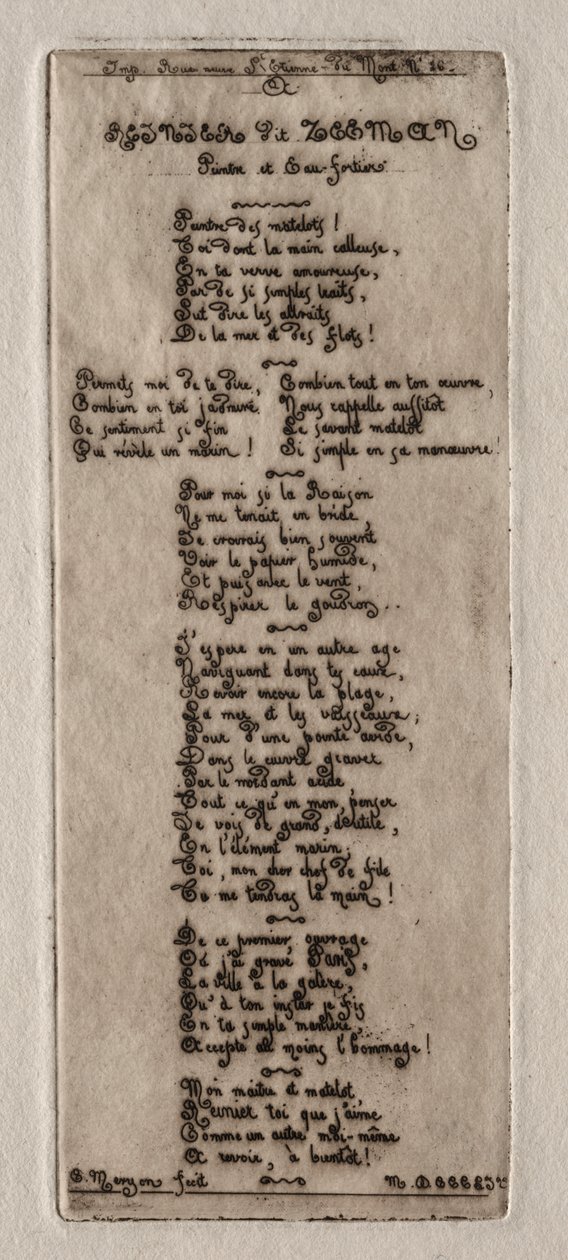 Imp. Rue neuve St Etienne-du Mont N° 26.
A
REINIER dit ZEEMAN
Peintre et Eau-fortier.
Peintre des matelots !
Toi dont la main calleuse,
En ta verve amoureuse,
Par de si simples traits,
Sut dire les attraits
De la mer et des flots !
Permets moi de te dire,
Combien en toi j'admire
Ce sentiment si fin
Qui révèle un marin !
Combien tout en ton œuvre,
Nous rappelle aussitôt
Le savant matelot
Si simple en sa manœuvre !
Pour moi si la Raison
Ne me tenait en bride,
Je croirais bien souvent
Voir le papier humide,
Et puis avec le vent,
Respirer le goudron . .
J'espere en un autre age
Naviguant dans tes eaux,
Revoir encore la plage,
La mer et les vaisseaux ;
Pour d'une pointe avide,
Dans le cuivre graver
Par le mordant acide,
Tout ce qu'en mon penser
Je vois de grand, d'utile,
En l'élément marin ;
Toi, mon cher chef de file
Tu me tendras la main !
De ce premier ouvrage
Où j'ai gravé Paris,
La ville à la galère,
Qu'à ton instar je fis
En ta simple manière,
Accepte au moins l'hommage !
Mon maitre et matelot,
Reinier toi que j'aime
Comme un autre moi-même
A revoir, à bientôt !
C. Meryon fecit